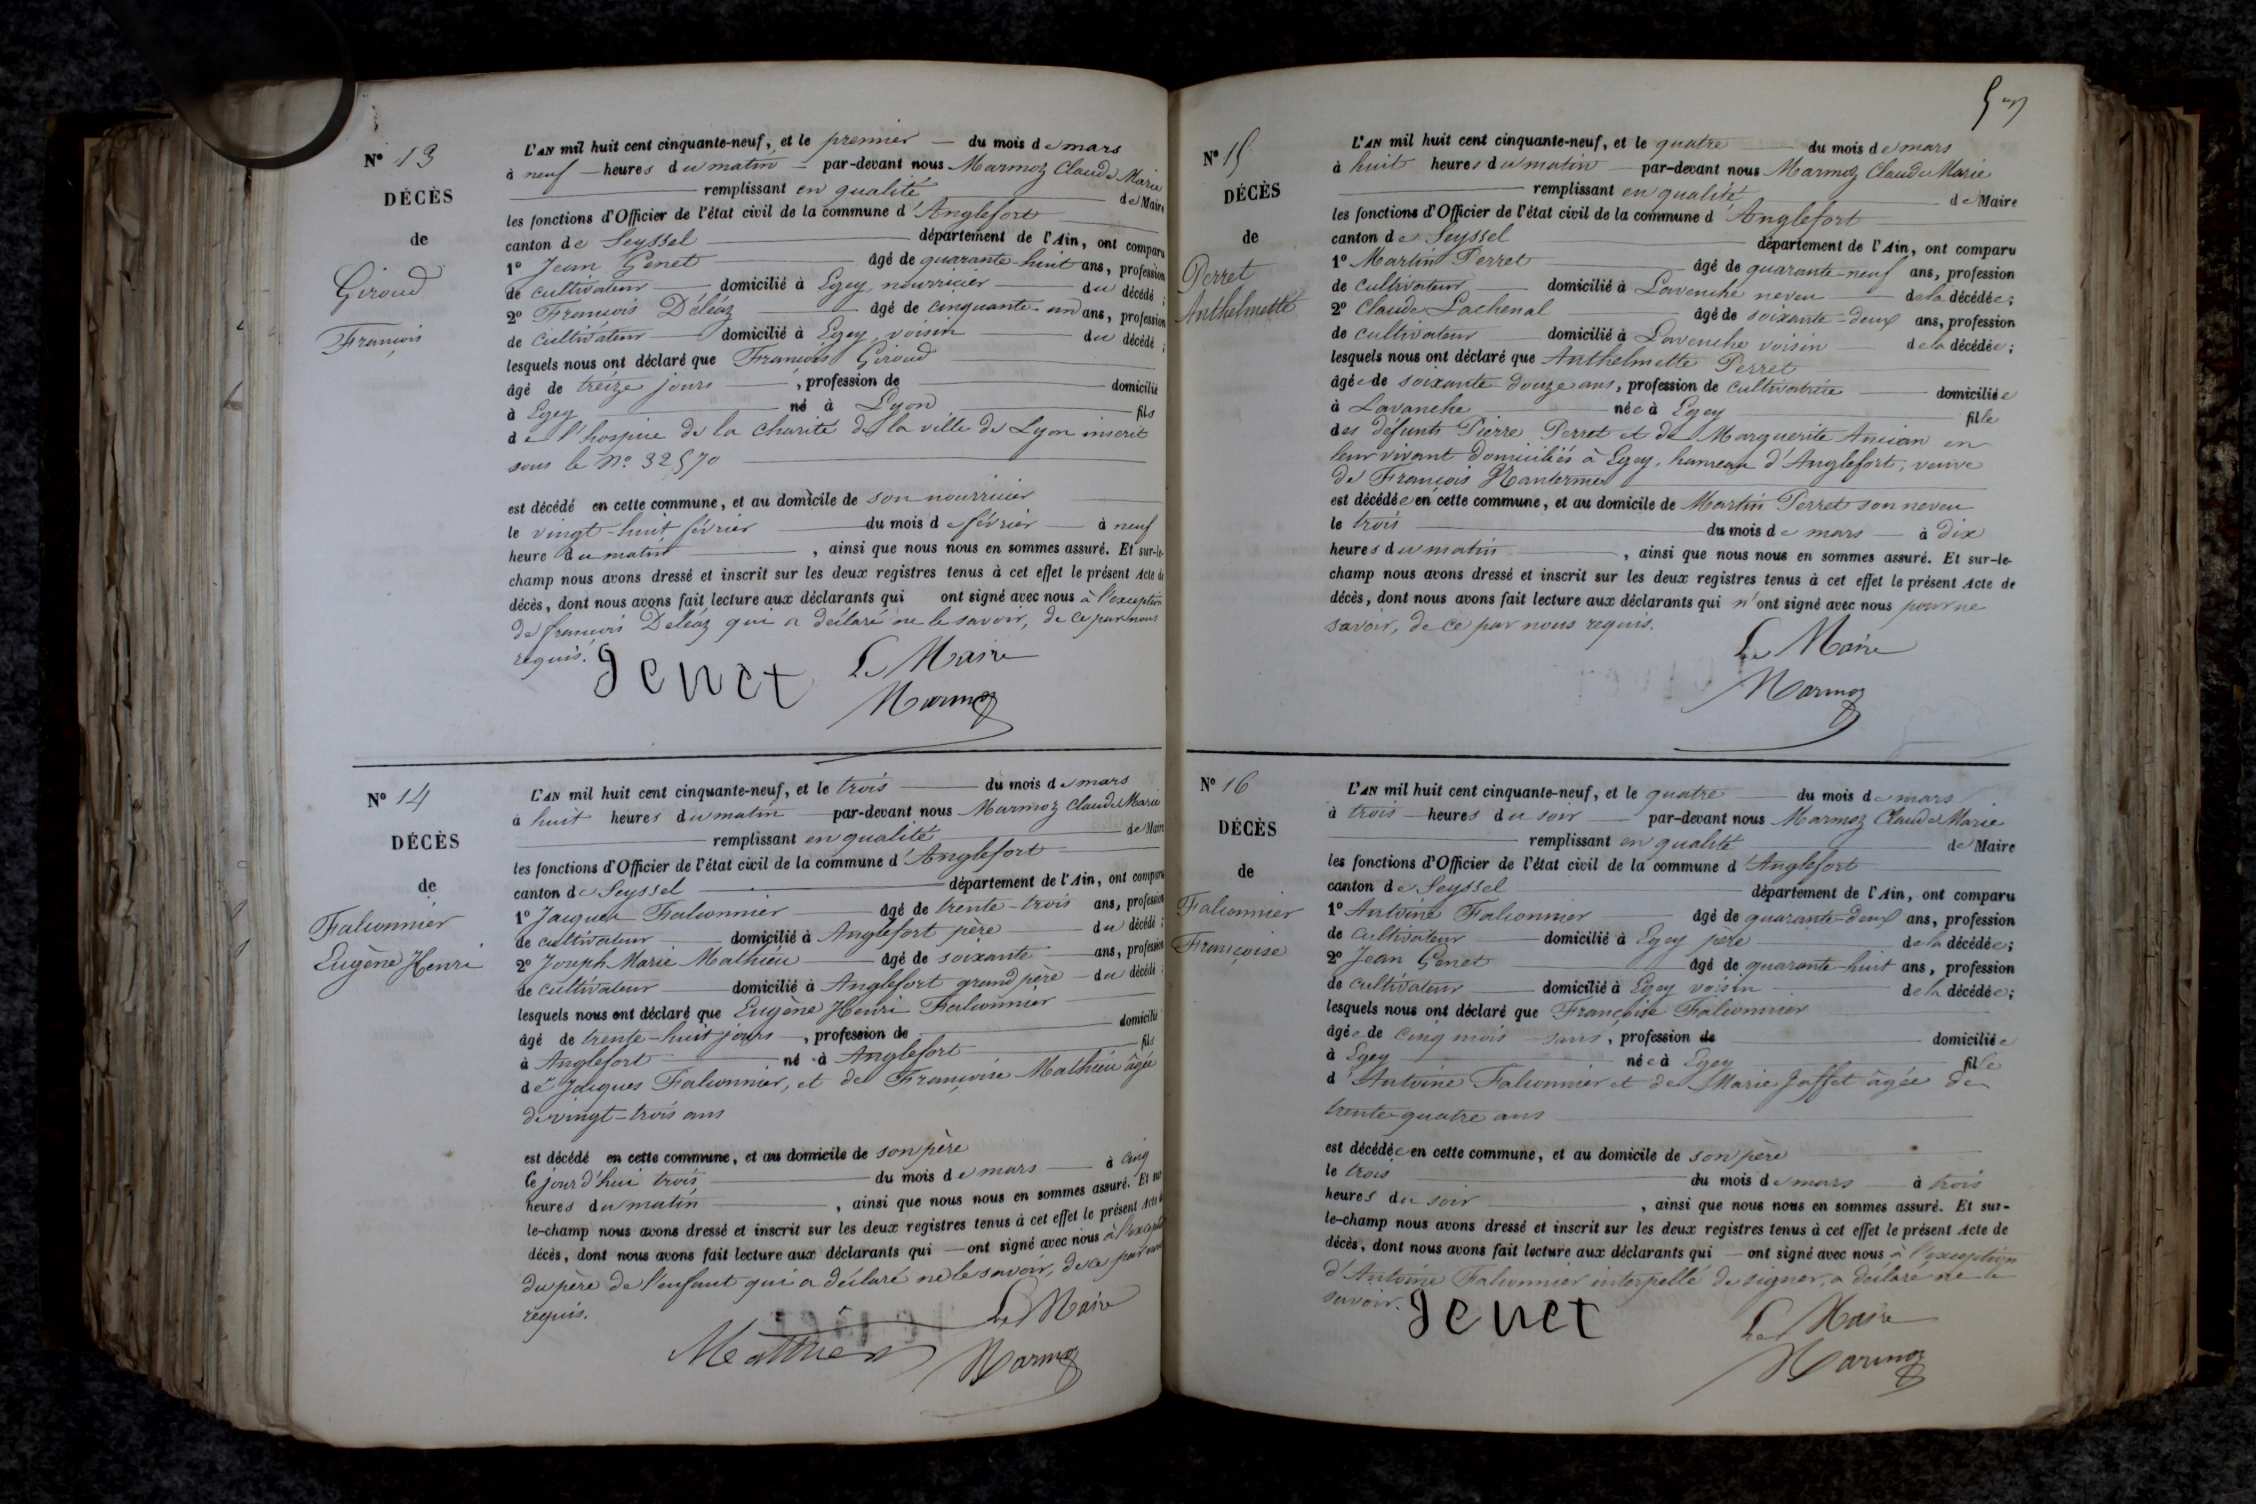 N° 13
DÉCÈS
de
Giroud
François
L'AN mil huit cent cinquante-neuf, et le premier — du mois de mars
à neuf — heures du matin — par-devant nous Marmoz Claude Marie
remplissant en qualité de Maire
les fonctions d'Officier de l'état civil de la commune d'Anglefort
canton de Seyssel département de l'Ain, ont comparu
1° Jean Genet âgé de quarante-huit ans, profession
de cultivateur domicilié à Egey, nourricier du décédé ;
2° François Déléaz âgé de cinquante-un ans, profession
de cultivateur domicilié à Egey, voisin du décédé ;
lesquels nous ont déclaré que François Giroud
âgé de treize jours , profession de domicilié
à Egey né à Lyon fils
de l'hospice de la charité de la ville de Lyon inscrit
sous le N° 32570
est décédé en cette commune, et au domicile de son nourricier
le vingt-huit février du mois de février — à neuf
heure du matin , ainsi que nous nous en sommes assuré. Et sur-le-
champ nous avons dressé et inscrit sur les deux registres tenus à cet effet le présent Acte de
décès, dont nous avons fait lecture aux déclarants qui ont signé avec nous à l'exception
de françois Déléaz qui a déclaré ne le savoir, de ce par nous
requis.
genet Le Maire
Marmoz
N° 14
DÉCÈS
de
Falconnier
Eugène Henri
L'AN mil huit cent cinquante-neuf, et le trois du mois de mars
à huit heures du matin par-devant nous Marmoz Claude Marie
remplissant en qualité de Maire
les fonctions d'Officier de l'état civil de la commune d'Anglefort
canton de Seyssel département de l'Ain, ont comparu
1° Jacques Falconnier âgé de trente-trois ans, profession
de cultivateur domicilié à Anglefort père du décédé ;
2° Joseph Marie Mathieu âgé de soixante ans, profession
de cultivateur domicilié à Anglefort grand père du décédé ;
lesquels nous ont déclaré que Eugène Henri Falconnier
âgé de trente-huit jours , profession de domicilié
à Anglefort né à Anglefort fils
de Jacques Falconnier, et de Françoise Mathieu âgée
de vingt-trois ans
est décédé en cette commune, et au domicile de son père
Ce jourd'hui trois du mois de mars à cinq
heures du matin , ainsi que nous nous en sommes assuré. Et sur
le-champ nous avons dressé et inscrit sur les deux registres tenus à cet effet le présent Acte de
décès, dont nous avons fait lecture aux déclarants qui — ont signé avec nous à l'exception
du père de l'enfant qui a déclaré ne le savoir, de ce par nous
requis.
Le Maire
Matthieu Marmoz
57
N° 15
DÉCÈS
de
Perret
Anthelmette
L'AN mil huit cent cinquante-neuf, et le quatre du mois de mars
à huit heures du matin par-devant nous Marmoz Claude Marie
remplissant en qualité de Maire
les fonctions d'Officier de l'état civil de la commune d'Anglefort
canton de Seyssel département de l'Ain, ont comparu
1° Martin Perret âgé de quarante-neuf ans, profession
de cultivateur domicilié à Lavenche neveu de la décédée ;
2° Claude Lachenal âgé de soixante-deux ans, profession
de cultivateur domicilié à Lavenche voisin de la décédée ;
lesquels nous ont déclaré que Anthelmette Perret
âgée de soixante douze ans, profession de cultivatrice domiciliée
à Lavanche née à Egey fille
des défunts Pierre Perret et de Marguerite Ancian en
leur vivant domiciliés à Egey, hameau d'Anglefort, veuve
de François Nantermet
est décédée en cette commune, et au domicile de Martin Perret son neveu
le trois du mois de mars à dix
heures du matin , ainsi que nous nous en sommes assuré. Et sur-le-
champ nous avons dressé et inscrit sur les deux registres tenus à cet effet le présent Acte de
décès, dont nous avons fait lecture aux déclarants qui n'ont signé avec nous pour ne
savoir, de ce par nous requis.
Le Maire
Marmoz
N° 16
DÉCÈS
de
Falconnier
Françoise
L'AN mil huit cent cinquante-neuf, et le quatre du mois de mars
à trois heures du soir par-devant nous Marmoz Claude Marie
remplissant en qualité de Maire
les fonctions d'Officier de l'état civil de la commune d'Anglefort
canton de Seyssel département de l'Ain, ont comparu
1° Antoine Falconnier âgé de quarante-deux ans, profession
de cultivateur domicilié à Egey père de la décédée ;
2° Jean Genet âgé de quarante-huit ans, profession
de cultivateur domicilié à Egey voisin de la décédée ;
lesquels nous ont déclaré que Françoise Falconnier
âgée de cinq mois sans, profession de domiciliée
à Egey née à Egey fille
d'Antoine Falconnier et de Marie Jaffet âgée de
trente-quatre ans
est décédée en cette commune, et au domicile de son père
le trois du mois de mars à trois
heures du soir , ainsi que nous nous en sommes assuré. Et sur-
le-champ nous avons dressé et inscrit sur les deux registres tenus à cet effet le présent Acte de
décès, dont nous avons fait lecture aux déclarants qui — ont signé avec nous à l'exception
d'Antoine Falconnier interpellé de signer, a déclaré ne le
savoir.
genet Le Maire
Marmoz